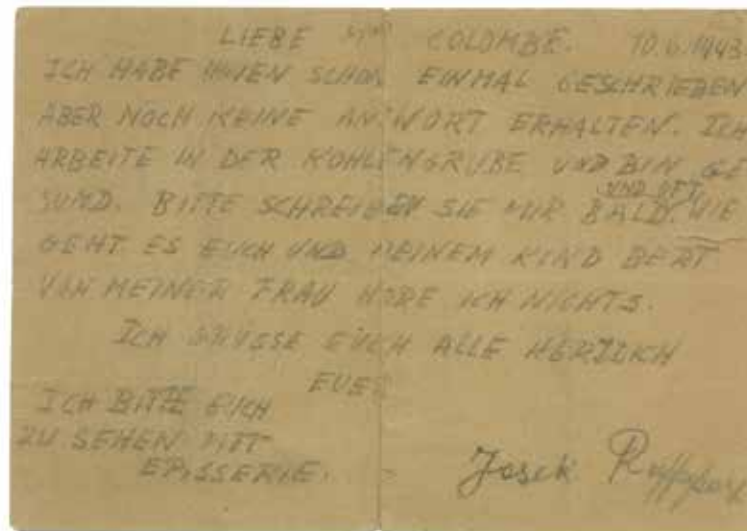 LIEBE COLOMBE. 10.6.1943
ICH HABE IHNEN SCHON EINMAL GESCHRIEBEN
ABER NOCH KEINE ANTWORT ERHALTEN. ICH
ARBEITE IN DER KOHLENGRUBE UND BIN GE
UND OFT
SUND. BITTE SCHREIBEN SIE MIR BALD. WIE
GEHT ES EUCH UND MEINEM KIND BERT
VON MEINER FRAU HÖRE ICH NICHTS.
ICH GRÜSSE EUCH ALLE HERZLICH
EUER
ICH BITTE EUCH
ZU SEHEN MIT
EPISSERIE.
Josek